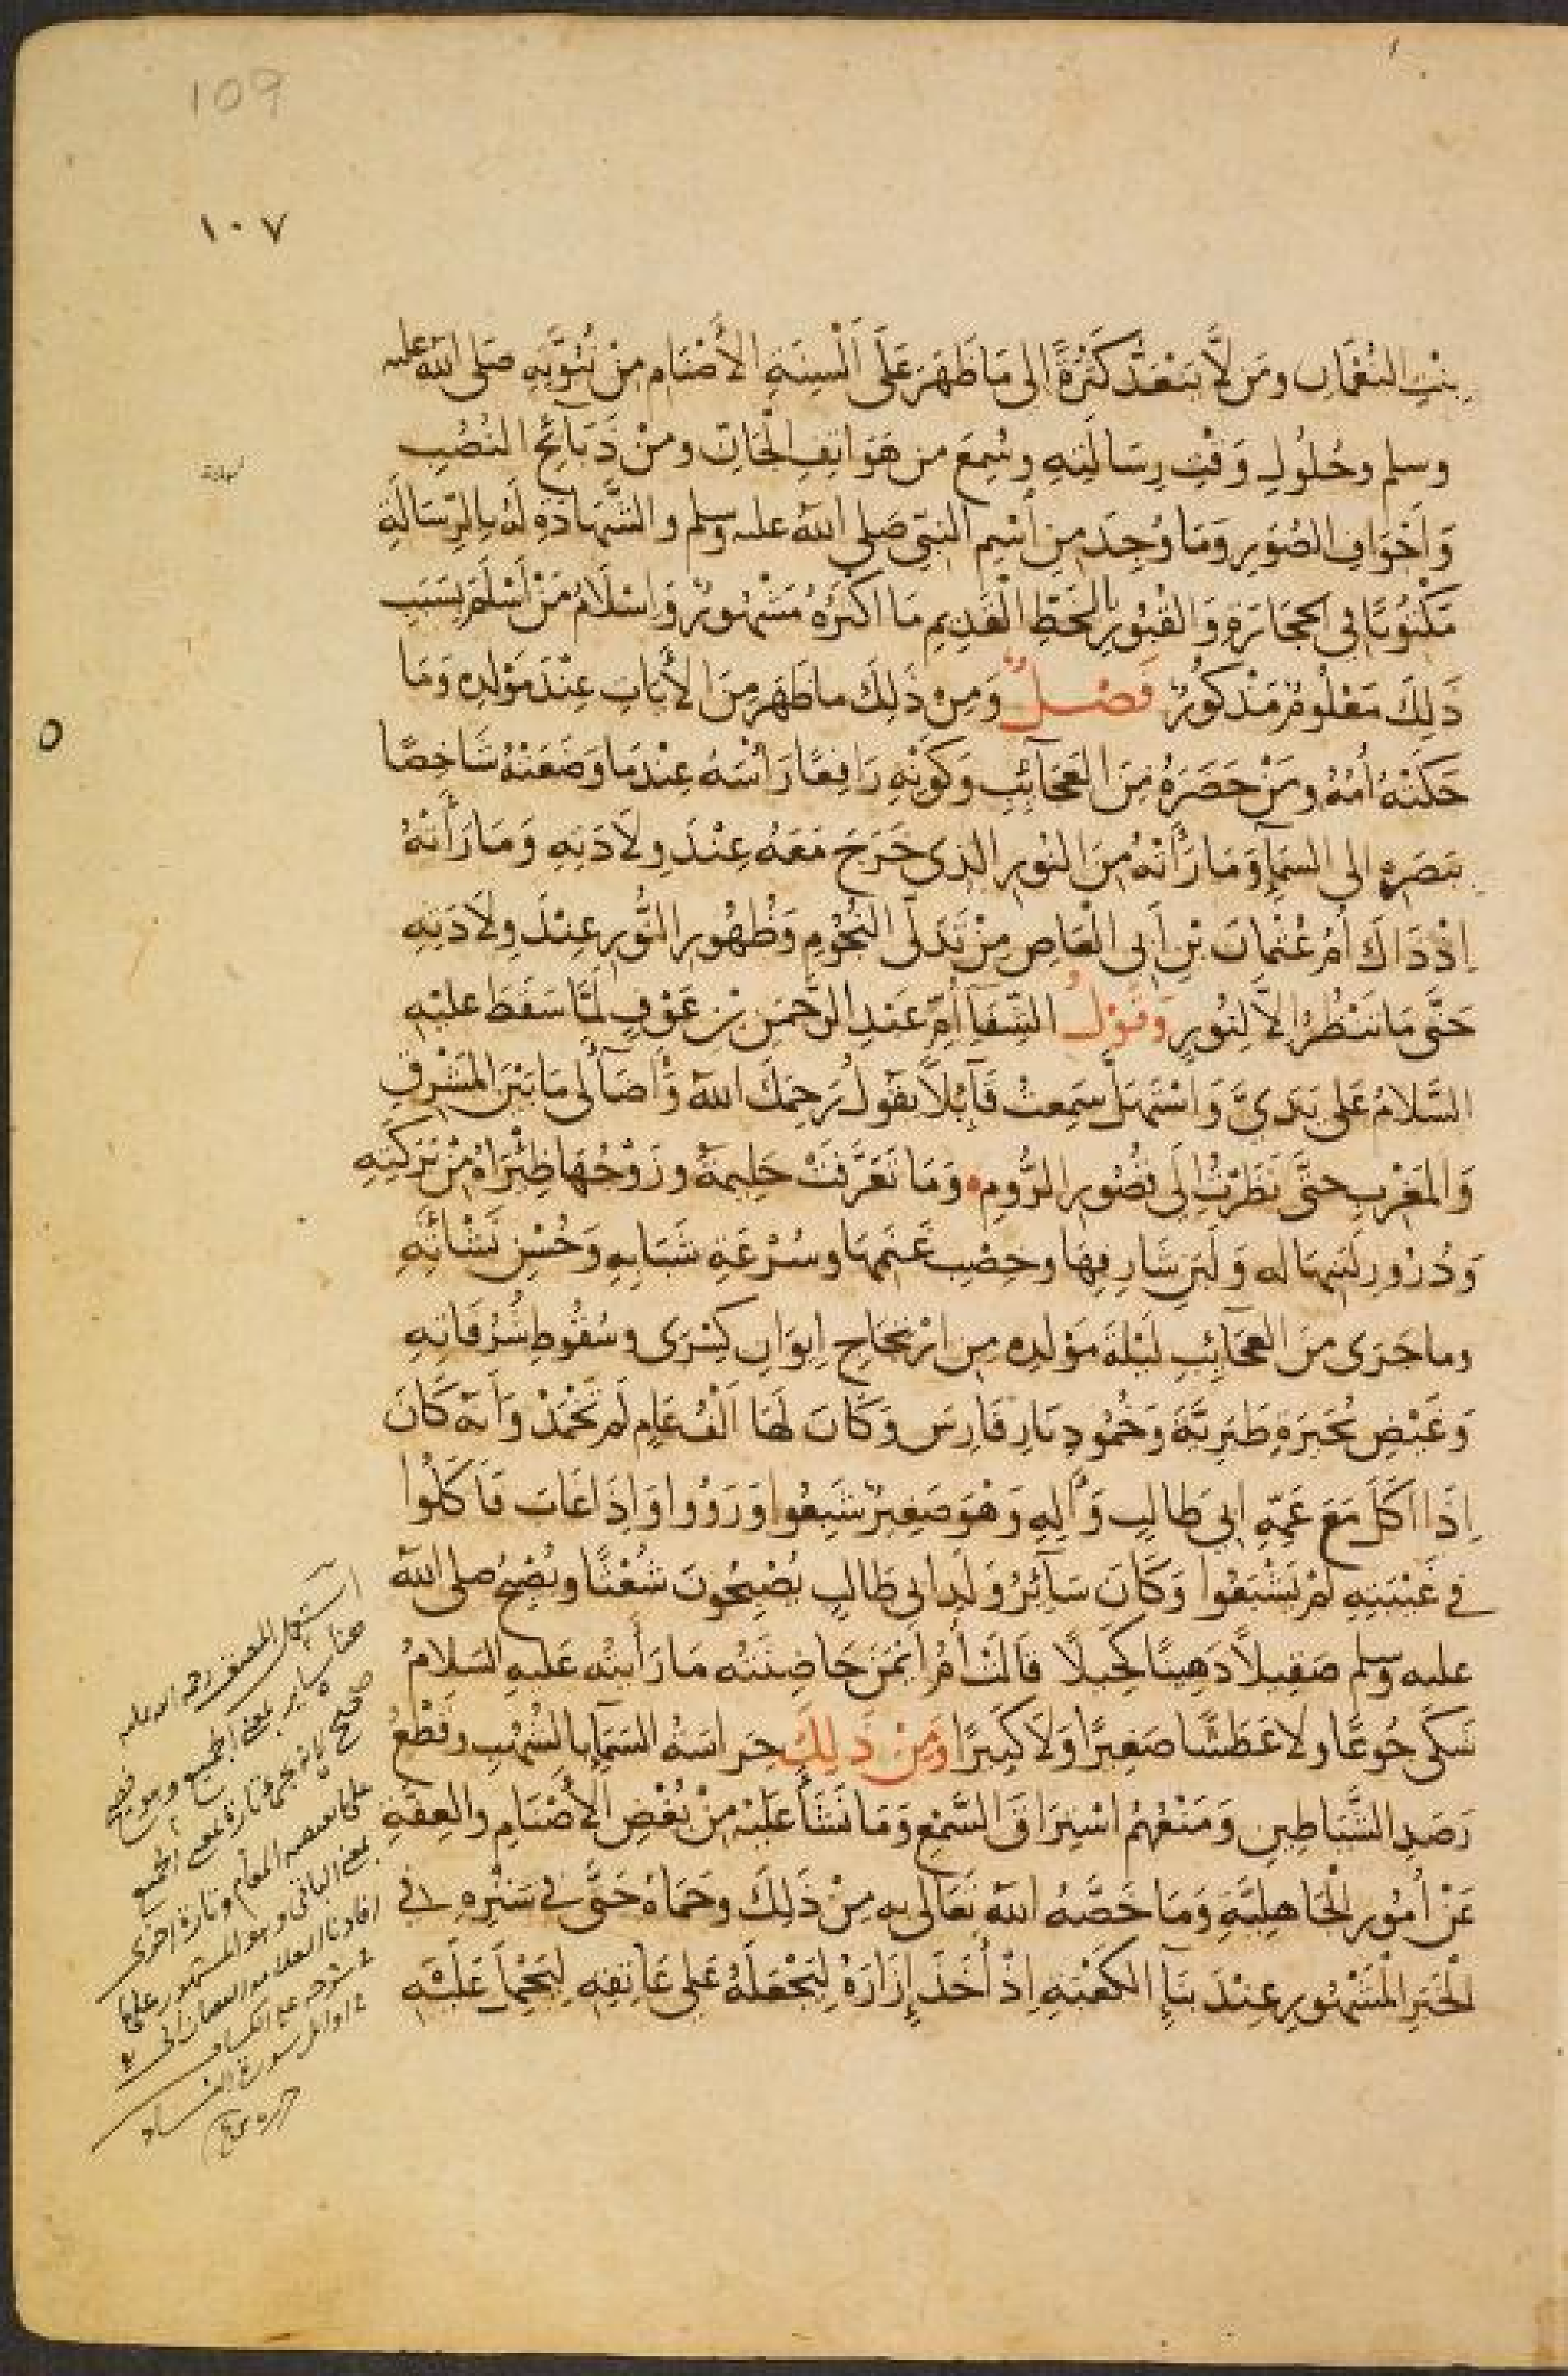 109
١٠٧
بِنْتِ النُّعْمَانِ وَمَن لَّا يَنْعَدُّ كَثْرَةً إلى مَا ظَهَرَ عَلَى أَلْسِنَةِ الأَصْنَامِ مِنْ نُبُوَّتِهِ صَلى اللّهُ عليه
وسلم وحُلُولِ وَقْتِ رِسَالَتِهِ وسُمِعَ من هَوَاتِفِ الْجَانِّ ومِنْ ذَبَائِحِ النُّصُبِ
وَأَجْوَافِ الصُّوَرِ وَمَا وُجِدَ مِنِ اسْمِ النَّبِيِّ صَلى اللّهُ عليه وسلم والشَّهَادَةِ لَهُ بِالرِّسَالَةِ
مَكْتُوبًا فِي الحِجَارَةِ وَالقُبُورِ بِالخَطِّ الْقَدِيمِ مَا اكْثَرُهُ مَشْهُورٌ وَإِسْلَامُ مَنْ أَسْلَمَ بِسَبَبِ
ذَلِكَ مَعْلُومٌ مَذْكُورٌ فَصْلٌ وَمِنْ ذَلِكَ ما ظَهَرَ مِنَ الأَيَاتِ عِنْدَ مَوْلِدِهِ وَمَا
حَكَتْهُ أُمُّهُ ومَنْ حَضَرَهُ مِنَ العَجَآئِبِ وَكَوْنِهِ رَافِعًا رَأسَهُ عِنْدَ مَا وَضَعَتْهُ شَاخِصًا
بِبَصَرِهِ إلى السمآءِ وَمَا رَأَتْهُ مِنَ النُّورِ الذِى خَرَجَ مَعَهُ عِنْدَ وِلَادَتِهِ وَمَا رَأَتْهُ
إِذْ ذَاكَ أُمُّ عُثْمانَ بْنِ أَبِى الْعَاصِ مِنْ تَدَلِّى النُّجُومِ وَظُهُورِ النُّورِ عِنْدَ وِلَادَتِهِ
حَتَّى مَا تَنْظُرُ إلَّا لِنُورٍ وَقَوْلُ الشِّفَآءِ أُمِّ عَبْدِ الرَّحْمَنِ بْنِ عَوْفٍ لَمَّا سَقَطَ عليْهِ
السَّلَامُ عَلى يَدَىَّ وَاسْتَهَلَّ سَمِعْتُ قَآئِلًا يَقُولُ رَحِمَكَ اللّهُ وَأَضَآءَ لى مَا بَيْنَ المَشْرِقِ
وَالمَغْرِبِ حتَّى نَظَرْتُ إِلَى قُصُورِ الرُّومِ وَمَا تَعَرَّفَتْ حَلِيمَةُ وزَوْجُهَا ظِئْرَاهُ مِنْ بَرَكَتِهِ
وَدُرُورِ لَبَنِهَا له وَلَبَنِ شَارِفِهَا وخِصْبِ غَنَمِهَا وسُرْعَةِ شَبَابِهِ وَحُسْنِ نَشْأَتِهِ
وما جَرَى مِنَ العَجَآئِبِ لَيْلَةَ مَوْلِدِهِ مِنِ ارْتِجَاجِ إيوَانِ كِسْرَى وسُقُوطِ شُرُفَاتِهِ
وَغَيْضِ بُحَيْرَةِ طَبَرِيَّةَ وَخُمُودِ نَارِ فَارِسَ وَكَانَ لَهَا اَلْفُ عَامٍ لَم تَخْمُدْ وَأَنَّهُ كَانَ
إِذَا أكَلَ مَعَ عَمِّهِ ابِي طَالِبٍ وَآلِهِ وَهْوَ صَغِيرٌ شَبِعُوا وَرَوُوا وَإِذَا غَابَ فَأَكَلُوا
فِي غَيْبَتِهِ لَمْ يَشْبَعُوا وَكَانَ سَآئِرُ وَلَدِ ابِى طَالِبٍ يُصْبِحُونَ شُعْثًا ويُصْبِحُ صلى اللّهُ
عليه وسلم صَقِيلًا دَهِينًا كَحِيلًا قَالَتْ أُمُّ أَيْمَنَ حَاضِنَتُهُ مَا رَأَيْتُه عَليهِ السَلامُ
شَكَى جُوعًا ولا عَطَشًا صَغِيرًا وَلَا كَبِيرًا وَمِنْ ذَلِكَ حِرَاسَةُ السَّمَآءِ بِالشُّهُبِ وقَطْعُ
رَصَدِ الشَّيَاطِينِ وَمَنْعُهُمُ اسْتِرَاقَ السَّمْعِ وَمَا نَشَأَ عَلَيْهِ مِنْ بُغْضِ الأَصْنَامِ والعِفَّةِ
عَنْ أُمُورِ الْجَاهِلِيَّةِ وَمَا خَصَّهُ اللّهُ تَعَالى بِهِ مِنْ ذَلِكَ وَحَمَاهُ حَتَّى في سَتْرِهِ في
الْخَبَرِ الْمَشْهُورِ عِنْدَ بِنَآءِ الكَعْبَةِ إذْ أَخَذَ إِزَارَهُ لِيَجْعَلَهُ عَلى عَاتِقِهِ لِيَحْمِلَ عَلَيْهِ
استعمل المصنف رحمه الله عليه
هنا ساير بمعنى الجميع وهو فصيح